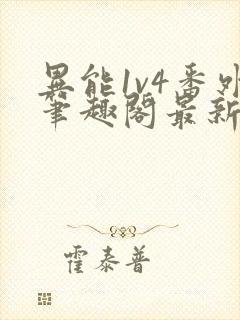 異能1v4番外
笔趣阁最新
霍泰普